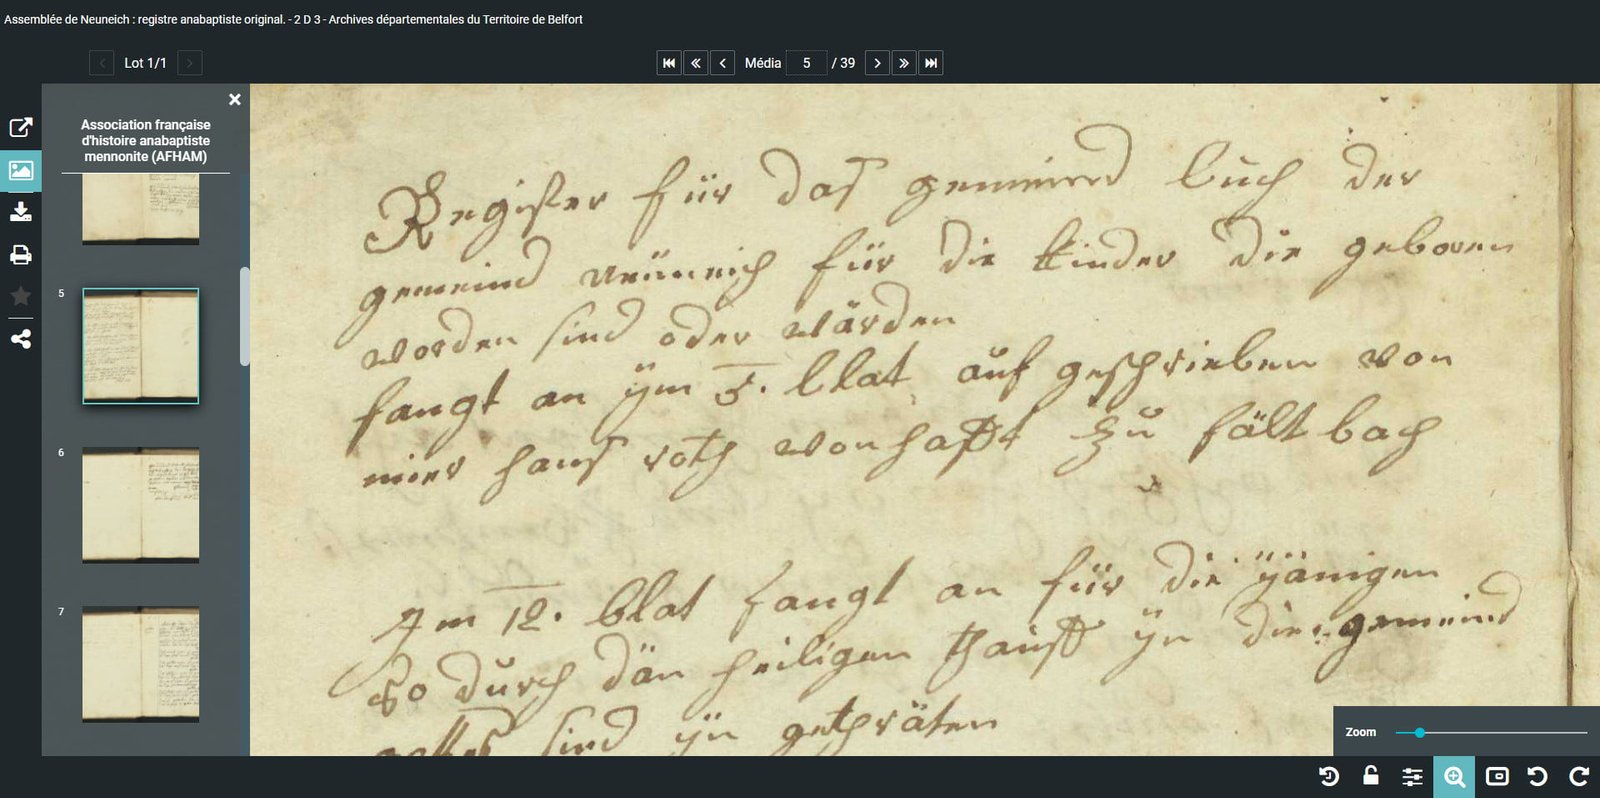 Assemblée de Neuneich : registre anabaptiste original. - 2 D 3 - Archives départementales du Territoire de Belfort
Lot 1/1
Média 5 / 39
Association française
d'histoire anabaptiste
mennonite (AFHAM)
5
6
7
Register für das gemeind buch der
gemeind neüneich für die kinder die geboren
worden sind oder wärden
fangt an ÿm 5. blat auf geschrieben von
mier hans roth wonhafft zu fältbach
Am 12. blat fangt an für die ÿänigen
so durch dän heiligen thauff ÿn die gemeind
sind ÿn gethräten
Zoom